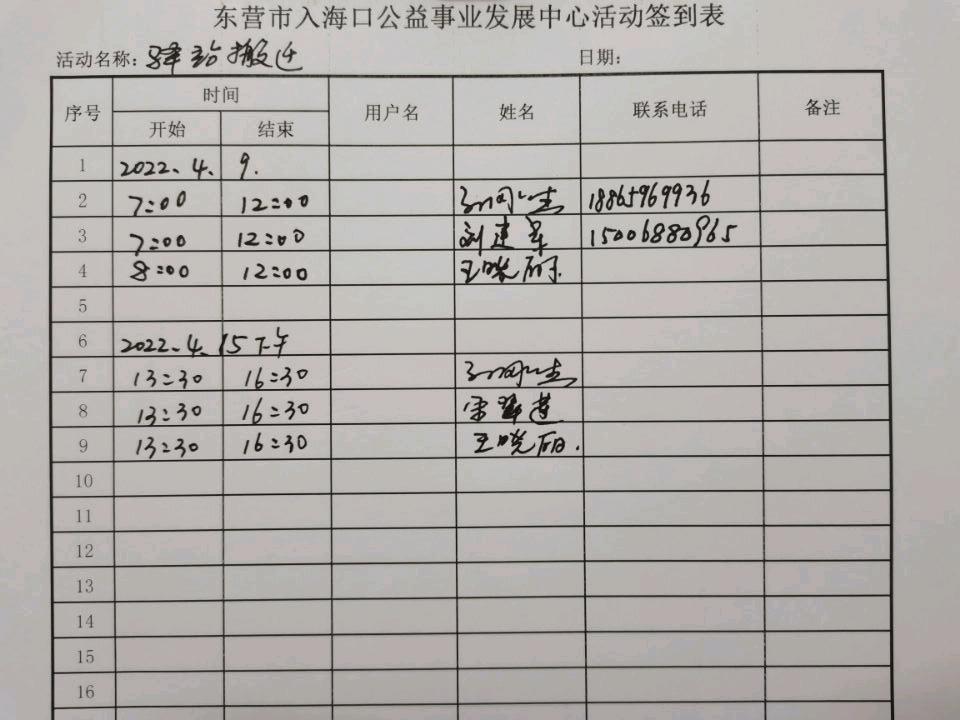 东营市入海口公益事业发展中心活动签到表
活动名称：驿站搬迁 日期：
序号 时间 用户名 姓名 联系电话 备注
开始 结束
1 2022.4. 9.
2 7:00 12:00 18865969936
3 7:00 12:00 刘建军 15006880965
4 8:00 12:00 王晓丽.
5
6 2022.4.15下午
7 13:30 16:30
8 13:30 16:30
9 13:30 16:30 王晓丽.
10
11
12
13
14
15
16